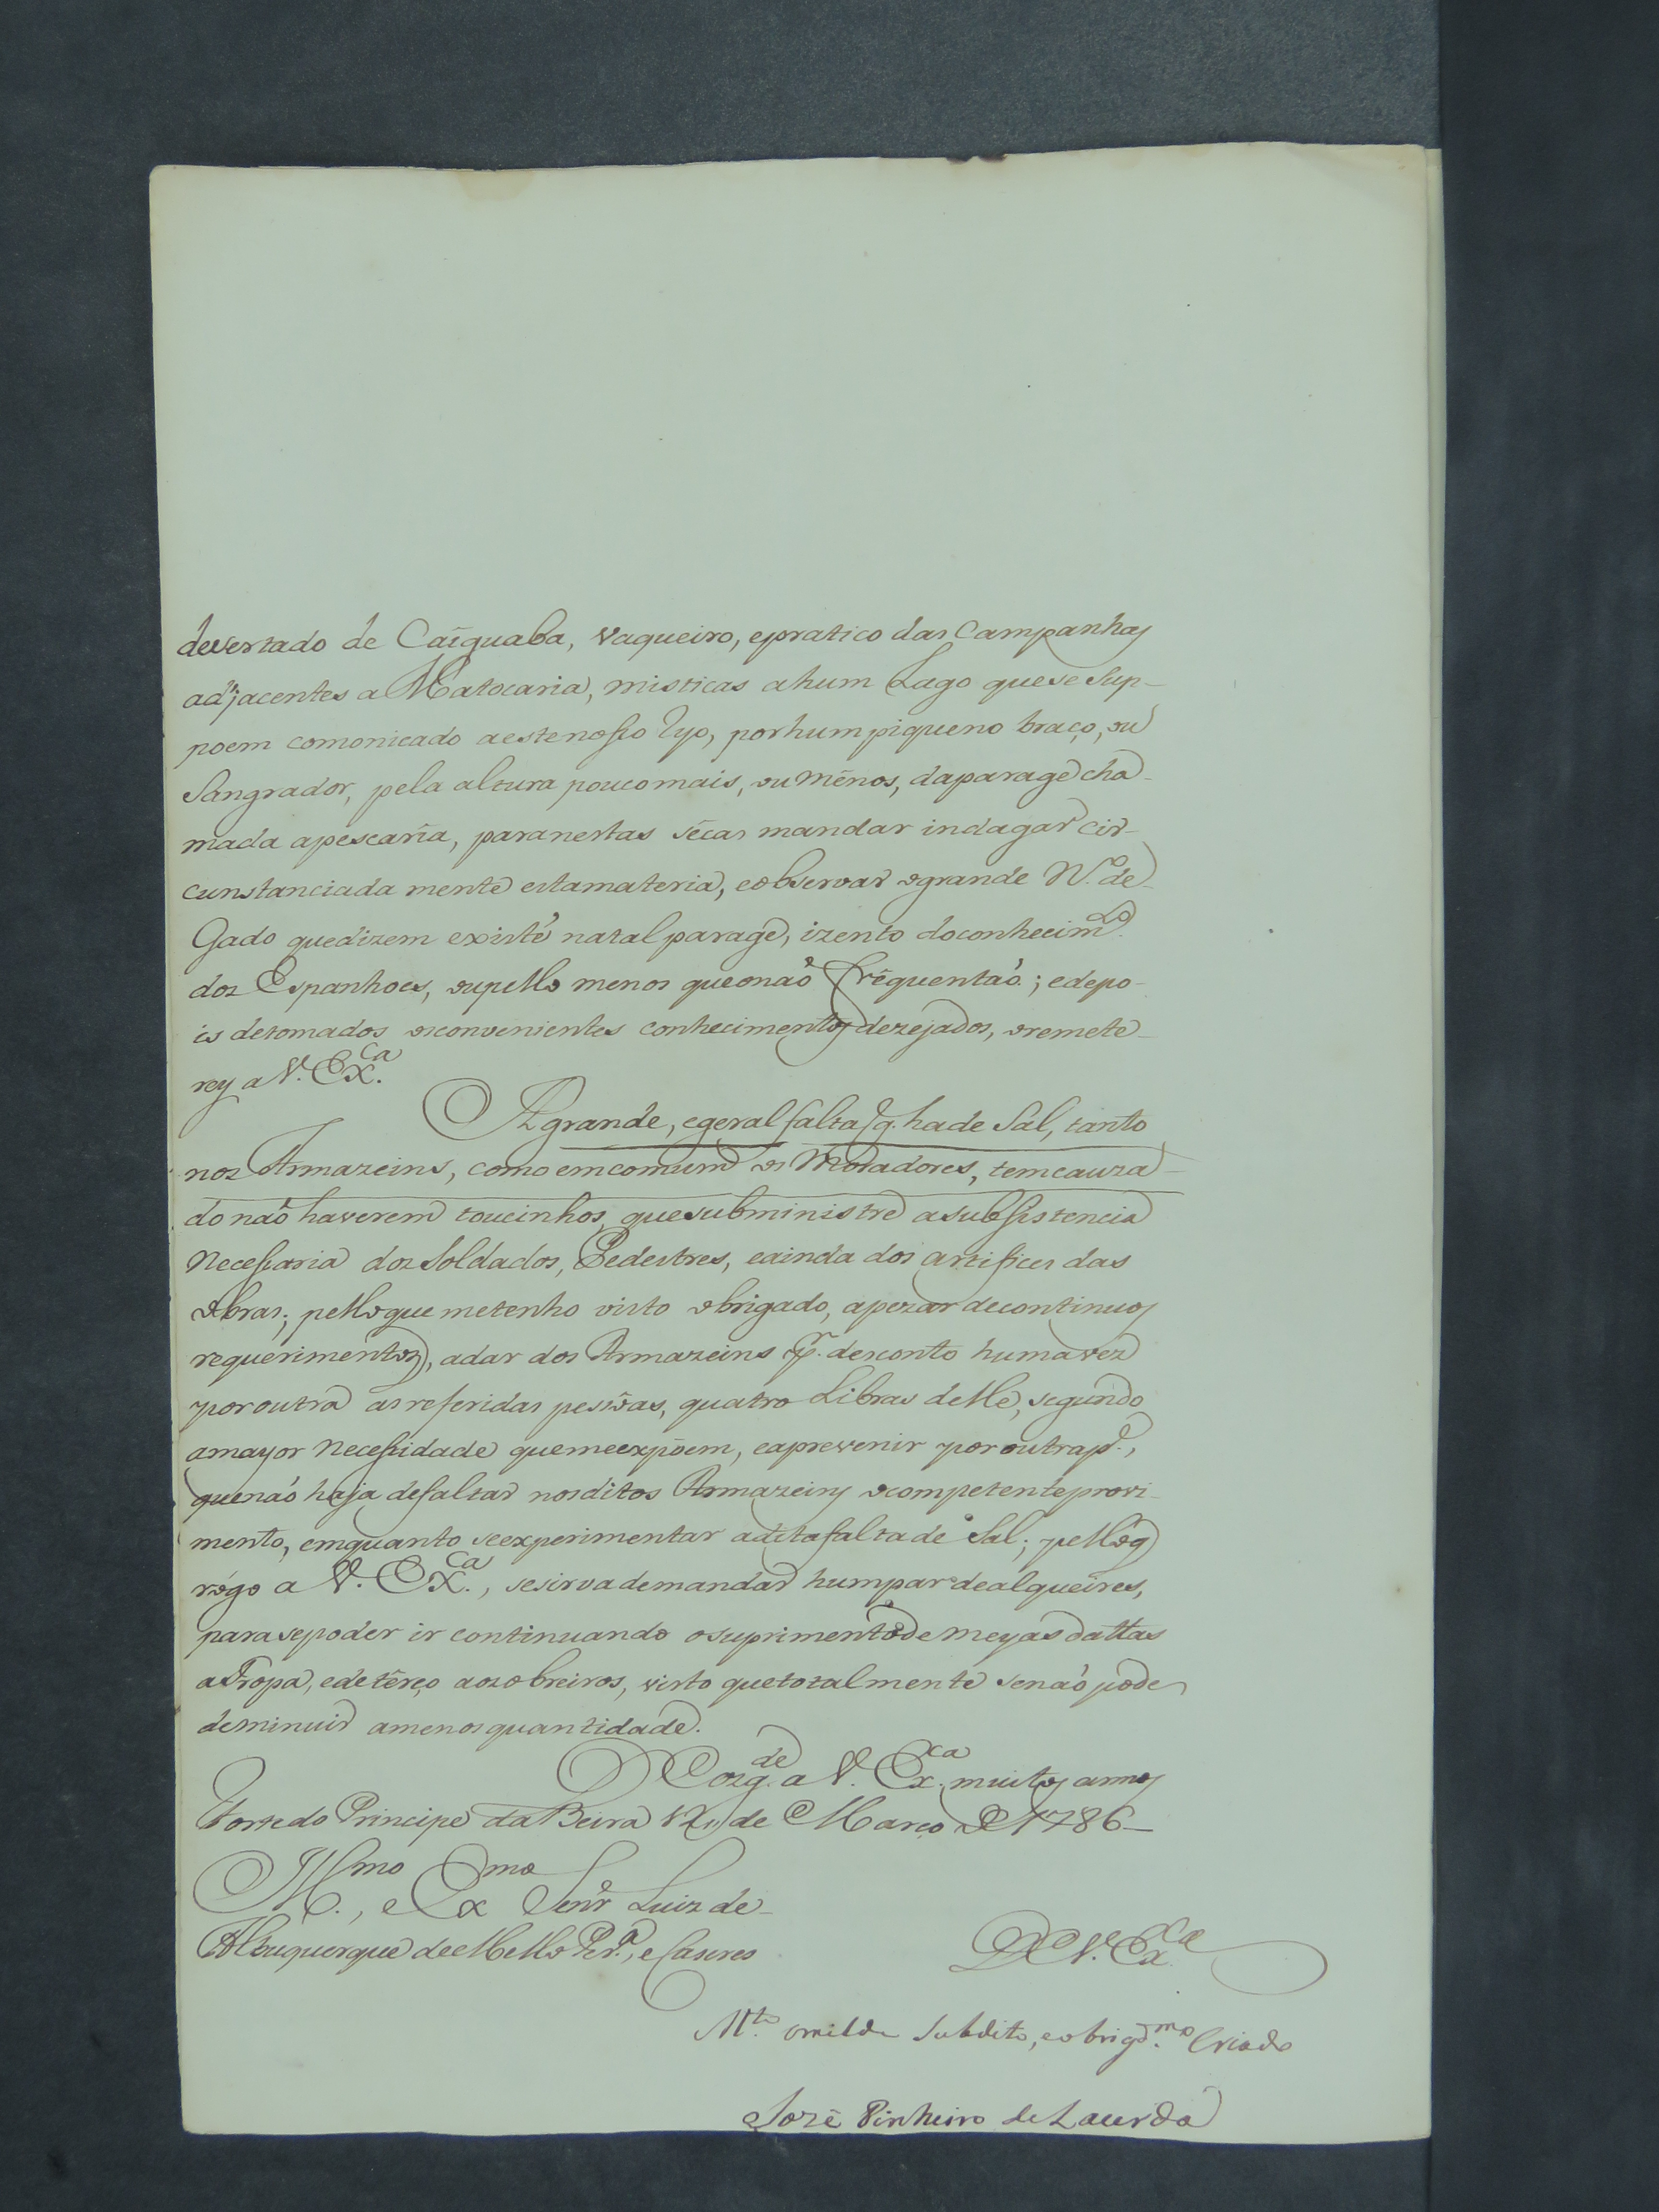 devertado de Caiguaba, vaqueiro, epratico das Campanhas
adjacentes a Matocaria, misticas ahum Lago quese Sup-
poem comonicado aestenosso Ryo, porhum piqueno braço, ou
Sangrador, pela altura poucomais, ou ménos, daparage cha-
mada apescaria, paranestas sécas mandar indagar cir-
cunstanciada mente estamateria, eobservar ogrande N.º de
Gado quedizem existé natal parage, izento doconhecim.to
dos Espanhoes, oupello menos queonaõ fréquentaõ; edepo-
is detomados osconvenientes conhecimentos dezejados, oremete-
rey a V. Ex.ca
A grande, egeral falta q̃. hade Sal, tanto
nos Armazeins, como emcomum os Moradores, temcauza-
do naõ haverem toucinhos, quesubministre asubsistencia
Necessaria dos Soldados, Pedestres, eainda dos artifices das
obras; pelloque metenho visto obrigado, apezar decontinuos
requerimentos, adar dos Armazeins p.r desconto humavez
poroutra as referidas pessoas, quatro Libras delle, segundo
amayor Necessidade quemeexpoem, eaprevenir por outrap.e,
quenaõ haja defaltar nosditos Armazeins ocompetenteprovi-
mento, emquanto seexperimentar aditafaltade Sal; pelloq̃
rógo a V. Ex.ca, sesirvademandar humpar dealqueires,
parasepoder ir continuando osuprimentode meyas dattas
aTropa, edetérço aosobreiros, visto quetotalmente senaõ pode
deminuir amenosquantidade.
Deos g.de a V. Ex.ca muitos annos
Forte do Principe da Beira de Março de 1786_
Ill.mo, e Ex.mo Senr Luiz de
Albuquerque deMello Per.a, e Caseres
De V. Ex.ca
M.to omilde Subdito, eobrigd.mo Criado
Jozé Pinheiro de Lacerda